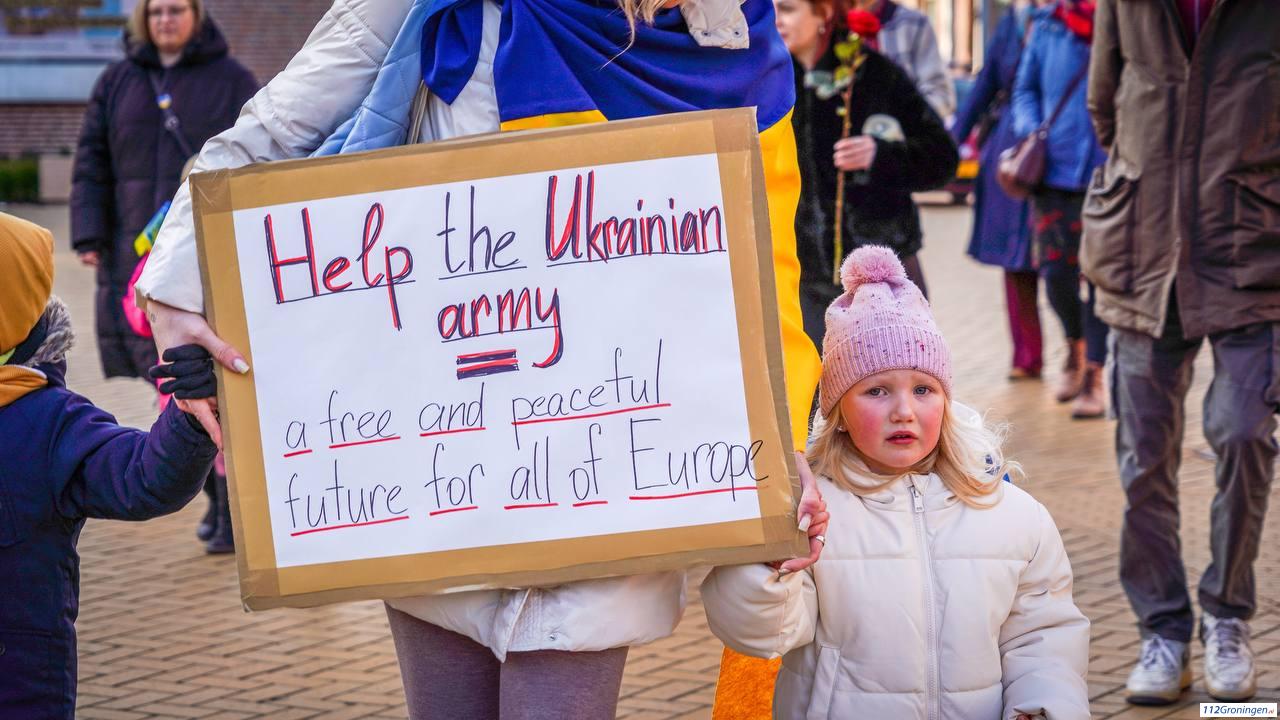 Help the Ukrainian
army
a free and peaceful
future for all of Europe
112Groningen.nl